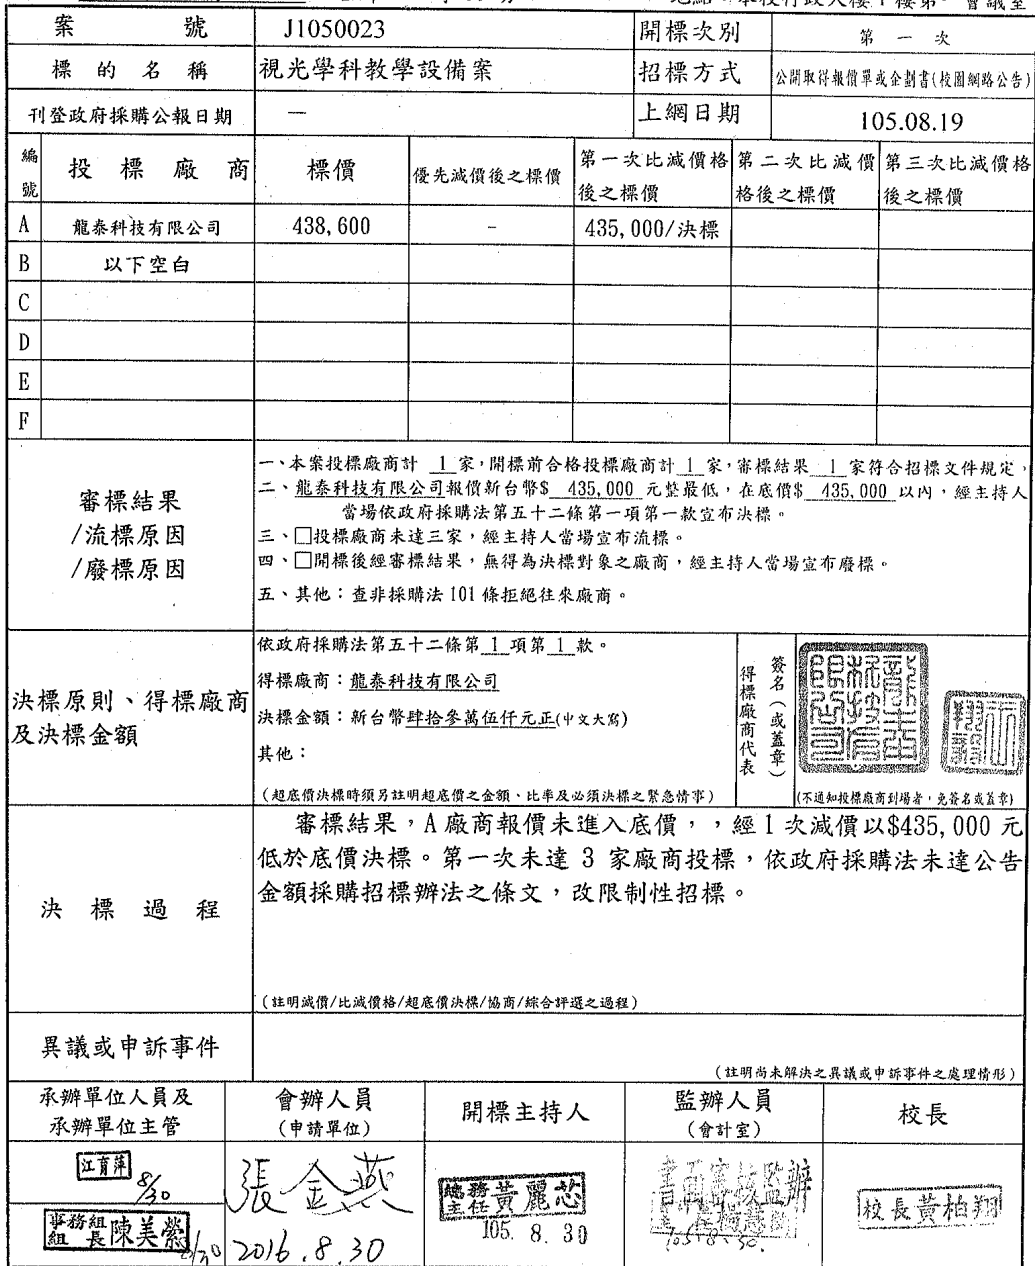 案號 J1050023 開標次別 第一次
標的名稱 視光學科教學設備案 招標方式 公開取得報價單或企劃書(校園網路公告)
刊登政府採購公報日期 — 上網日期 105.08.19
編號 投標廠商 標價 優先減價後之標價 第一次比減價格後之標價 第二次比減價格後之標價 第三次比減價格後之標價
A 龍泰科技有限公司 438,600 - 435,000/決標
B 以下空白
C
D
E
F
審標結果
/流標原因
/廢標原因
一、本案投標廠商計 1 家，開標前合格投標廠商計 1 家，審標結果 1 家符合招標文件規定，
二、龍泰科技有限公司報價新台幣$ 435,000 元整最低，在底價$ 435,000 以內，經主持人
當場依政府採購法第五十二條第一項第一款宣布決標。
三、□投標廠商未達三家，經主持人當場宣布流標。
四、□開標後經審標結果，無得為決標對象之廠商，經主持人當場宣布廢標。
五、其他：查非採購法101條拒絕往來廠商。
決標原則、得標廠商
及決標金額
依政府採購法第五十二條第 1 項第 1 款。
得標廠商：龍泰科技有限公司
決標金額：新台幣肆拾參萬伍仟元正(中文大寫)
其他：
(超底價決標時須另註明超底價之金額、比率及必須決標之緊急情事)
得標廠商代表
簽名（或蓋章）
(不通知投標廠商到場者，免簽名或蓋章)
決標過程
審標結果，A廠商報價未進入底價，，經1次減價以$435,000元
低於底價決標。第一次未達 3 家廠商投標，依政府採購法未達公告
金額採購招標辦法之條文，改限制性招標。
(註明減價/比減價格/超底價決標/協商/綜合評選之過程)
異議或申訴事件
(註明尚未解決之異議或申訴事件之處理情形)
承辦單位人員及
承辦單位主管
會辦人員
(申請單位)
開標主持人
監辦人員
(會計室)
校長
江育萍
8/30
事務組組長陳美縈
8/30
張金燕
2016.8.30
總務主任黃麗芯
105. 8. 30
書面審核監辦
105.8.30.
校長黃柏翔